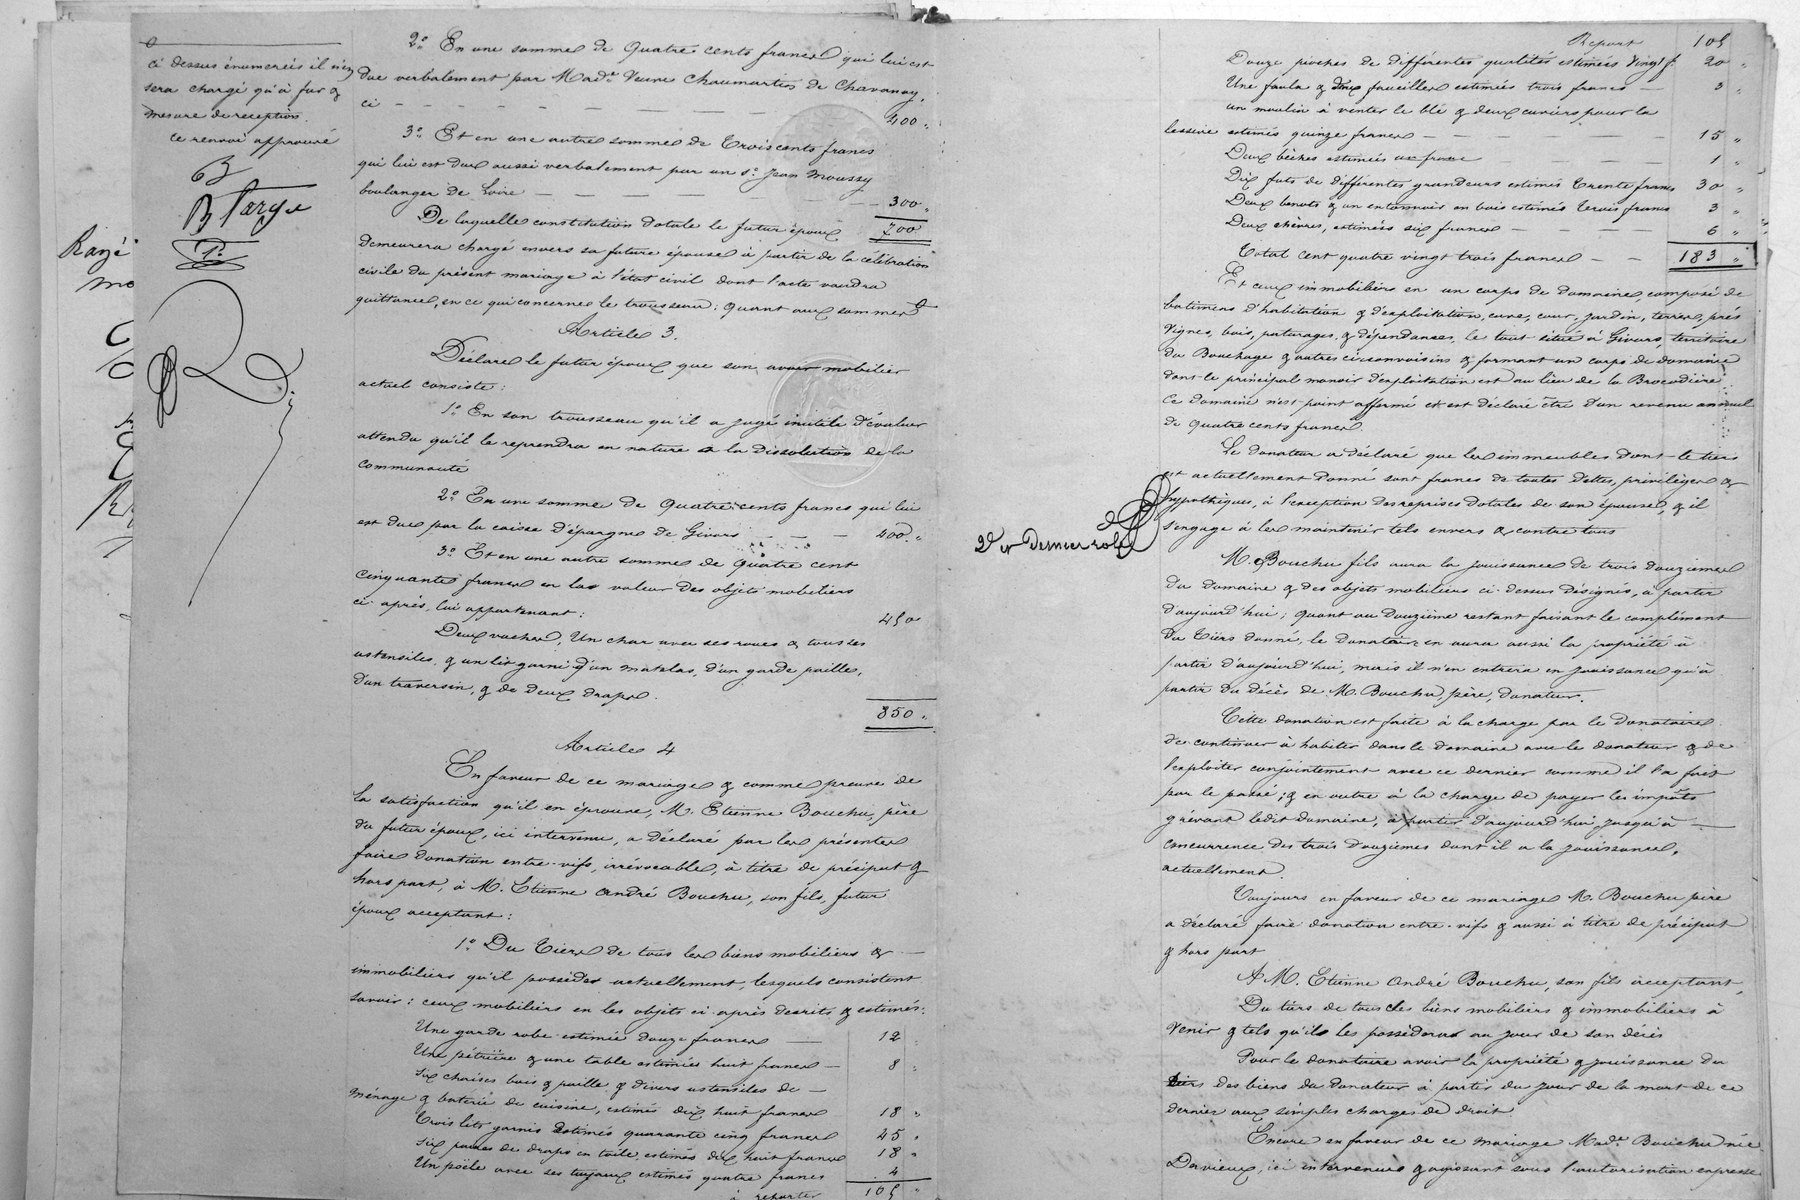 ci dessus énumérées il n'en
sera chargé qu'à fur &
mesure de réception.
ce renvoi approuvé
B
B Targe
Rayé
2o En une somme de Quatre cents francs qui lui est
due verbalement par Made Veuve Chaumartin de Chavanay,
ci — 400 "
3o Et en une autre somme de Trois cents francs
qui lui est due aussi verbalement par un sr Jean Moussy
boulanger de Loire — 300 "
De laquelle constitution dotale le futur époux 700
demeurera chargé envers sa future épouse à partir de la célébration
civile du présent mariage à l'état civil dont l'acte vaudra
quittance, en ce qui concerne le trousseau; quant aux sommes
Article 3.
Déclare le futur époux que son avoir mobilier
actuel consiste:
1o En son trousseau qu'il a jugé inutile d'évaluer
attendu qu'il le reprendra en nature à la dissolution de la
communauté
2o En une somme de Quatre cents francs qui lui
est due par la caisse d'épargne de Givors — 400 "
3o Et en une autre somme de Quatre cent
cinquante francs en la valeur des objets mobiliers
ci-après, lui appartenant: 450
Deux vaches, Un char avec ses roues & tous ses
ustensiles, & un lit garni d'un matelas, d'un garde paille,
d'un traversin, & de deux draps.
850 "
Article 4
En faveur de ce mariage & comme preuve de
la satisfaction qu'il en éprouve, M. Etienne Bouchu, père
du futur époux, ici intervenu, a déclaré par les présentes
faire donation entre-vifs, irrévocable, à titre de préciput &
hors part, à M. Etienne André Bouchu, son fils, futur
époux acceptant:
1o Du Tiers de tous les biens mobiliers &
immobiliers qu'il possède actuellement, lesquels consistent
savoir: ceux mobiliers en les objets ci-après décrits & estimés:
Une garde robe estimée douze francs — 12 "
Une pétrière & une table estimées huit francs — 8 "
Six chaises bois & paille, & divers ustensiles de
ménage & batterie de cuisine, estimés dix huit francs 18 "
Trois lits garnis estimés quarante cinq francs 45 "
Six paires de draps en toile, estimés dix huit francs 18 "
Un poële avec ses tuyaux estimés quatre francs 4
à reporter 105 "
Report 105
Douze pioches de différentes qualités estimées Vingt f. 20 "
Une faulx & deux faucilles estimées trois francs — 3 "
un moulin à venter le blé & deux cuviers pour la
lessive estimés quinze francs — 15 "
Deux bêches estimées un franc — 1 "
Dix futs de différentes grandeurs estimés Trente francs 30 "
Deux benots & un entonnoir en bois estimés trois francs 3 "
Deux chèvres, estimées six francs — 6 "
Total cent quatre vingt trois francs — 183 "
Et ceux immobiliers en un corps de domaine composé de
batimens d'habitation & d'exploitation, cuve, cour, jardin, terres, prés
Vignes, bois, paturages, & dépendances, le tout situé à Givors, territoire
du Bouchage & autres circonvoisins & formant un corps de domaine
dont le principal manoir d'exploitation est au lieu de la Brocodière
Ce domaine n'est point affermé et est déclaré être d'un revenu annuel
de quatre cents francs.
Le donateur a déclaré que les immeubles dont le tiers
est actuellement donné sont francs de toutes dettes, privilèges &
hypothèques, à l'exception des reprises dotales de son épouse, & il
s'engage à les maintenir tels envers & contre tous
2e & dernier rôle
M. Bouchu fils aura la jouissance de trois douzièmes
du domaine & des objets mobiliers ci-dessus désignés, à partir
d'aujourd'hui; quant au douzième restant faisant le complément
du Tiers donné, le donataire en aura aussi la propriété à
partir d'aujourd'hui, mais il n'en entrera en jouissance qu'à
partir du décès de M. Bouchu, père, donateur.
Cette donation est faite à la charge par le donataire
de continuer à habiter dans le domaine avec le donateur & de
l'exploiter conjointement avec ce dernier comme il l'a fait
par le passé; & en outre à la charge de payer les impôts
grévant ledit domaine, à partir d'aujourd'hui jusqu'à
concurrence des trois douzièmes dont il a la jouissance,
actuellement.
Toujours en faveur de ce mariage M. Bouchu père
a déclaré faire donation entre-vifs & aussi à titre de préciput
& hors part
A M. Etienne André Bouchu, son fils acceptant,
Du tiers de tous les biens mobiliers & immobiliers à
venir & tels qu'il les possèdera au jour de son décès
Pour le donataire avoir la propriété & jouissance du
tiers des biens du donateur à partir du jour de la mort de ce
dernier aux simples charges de droit
Encore en faveur de ce mariage Made Bouchu née
Davieux, ici intervenue & agissant sous l'autorisation expresse